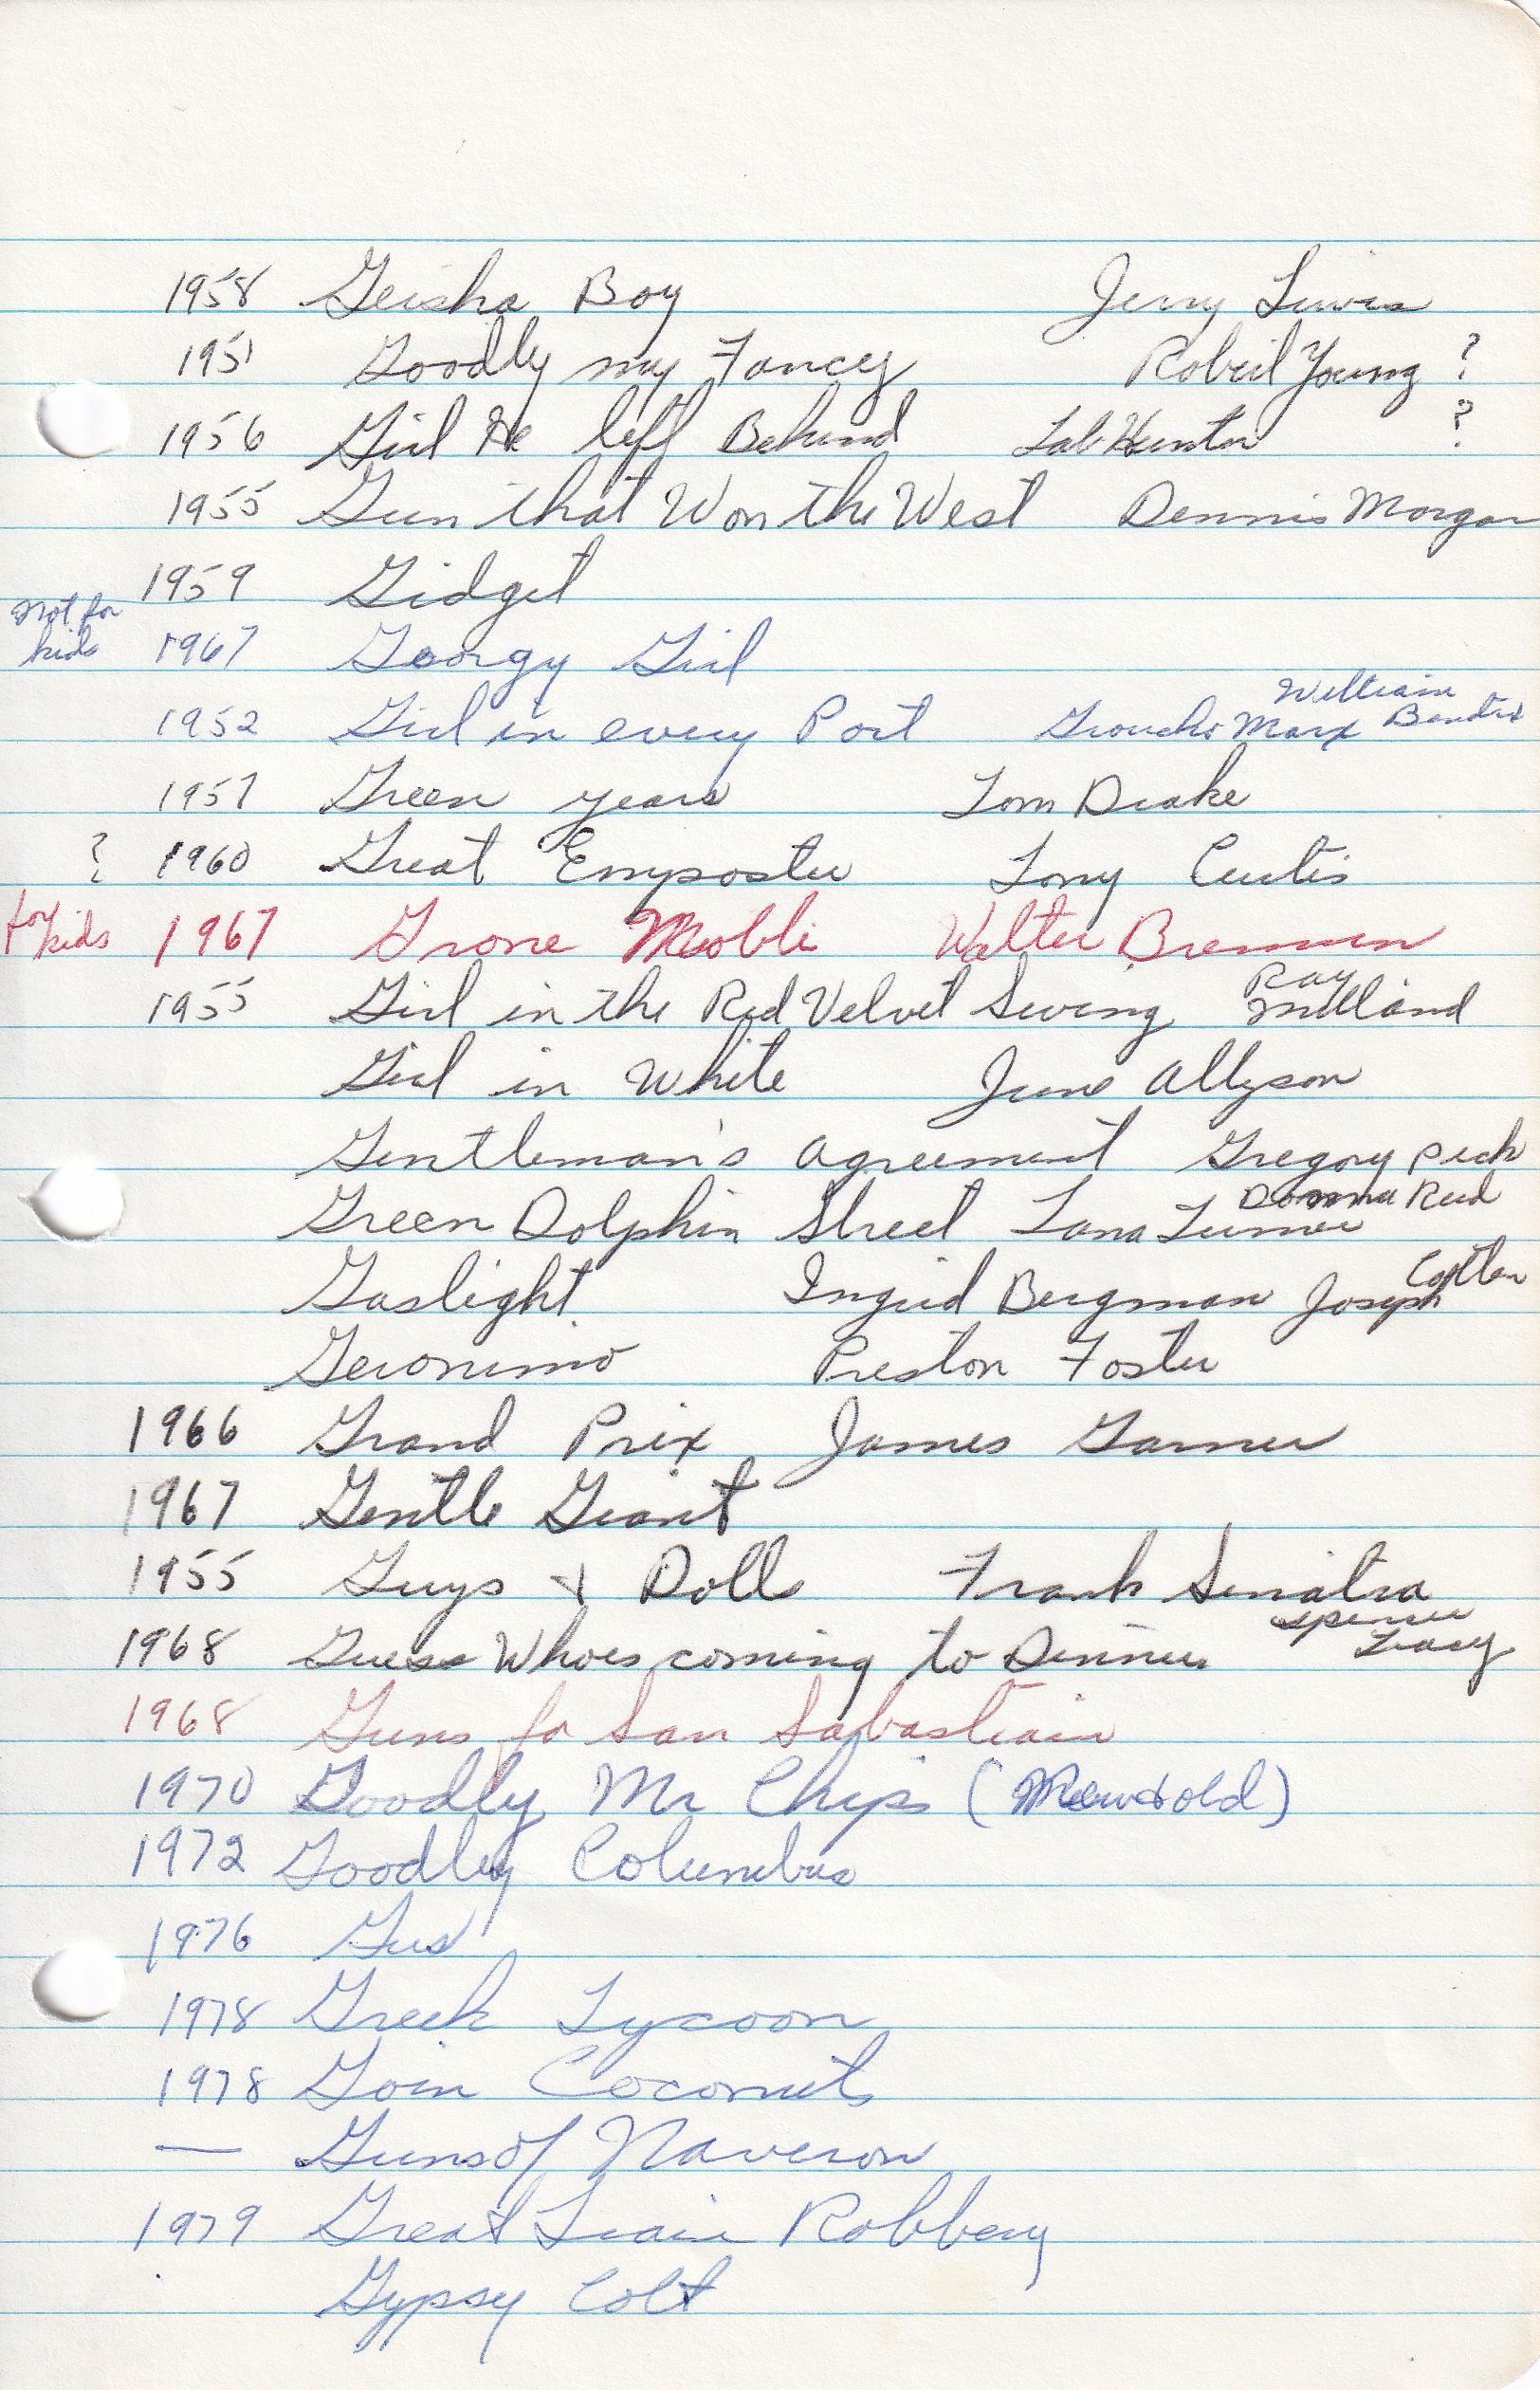 1958 Geisha Boy Jerry Lewis
1951 Goodby my Fancy Robert Young ?
1956 Girl He left Behind Tab Hunter ?
1955 Gun that Won the West Dennis Morgan
1959 Gidget
not for kids 1967 Georgy Girl
1952 Girl in every Port Groucho Marx William Bendix
1957 Green years Tom Drake
? 1960 Great Emposter Tony Curtis
for kids 1967 Grone Mobli Walter Brennen
1955 Girl in the Red Velvet Swing Ray Milland
Girl in White June Allyson
Gentleman's Agreement Gregory Peck
Green Dolphin Street Lana Turner Donna Reed
Gaslight Ingrid Bergman Joseph Cotten
Geronimo Preston Foster
1966 Grand Prix James Garner
1967 Gentle Giant
1955 Guys & Dolls Frank Sinatra
1968 Guess Whoes coming to Dinner Spencer Tracy
1968 Guns fo San Sabastiain
1970 Goodby Mr Chips ( old)
1972 Goodby Columbus
1976 Gus
1978 Greek Tycoon
1978 Goin Coconuts
— Guns of Naveron
1979 Great Train Robbery
Gypsy Colt